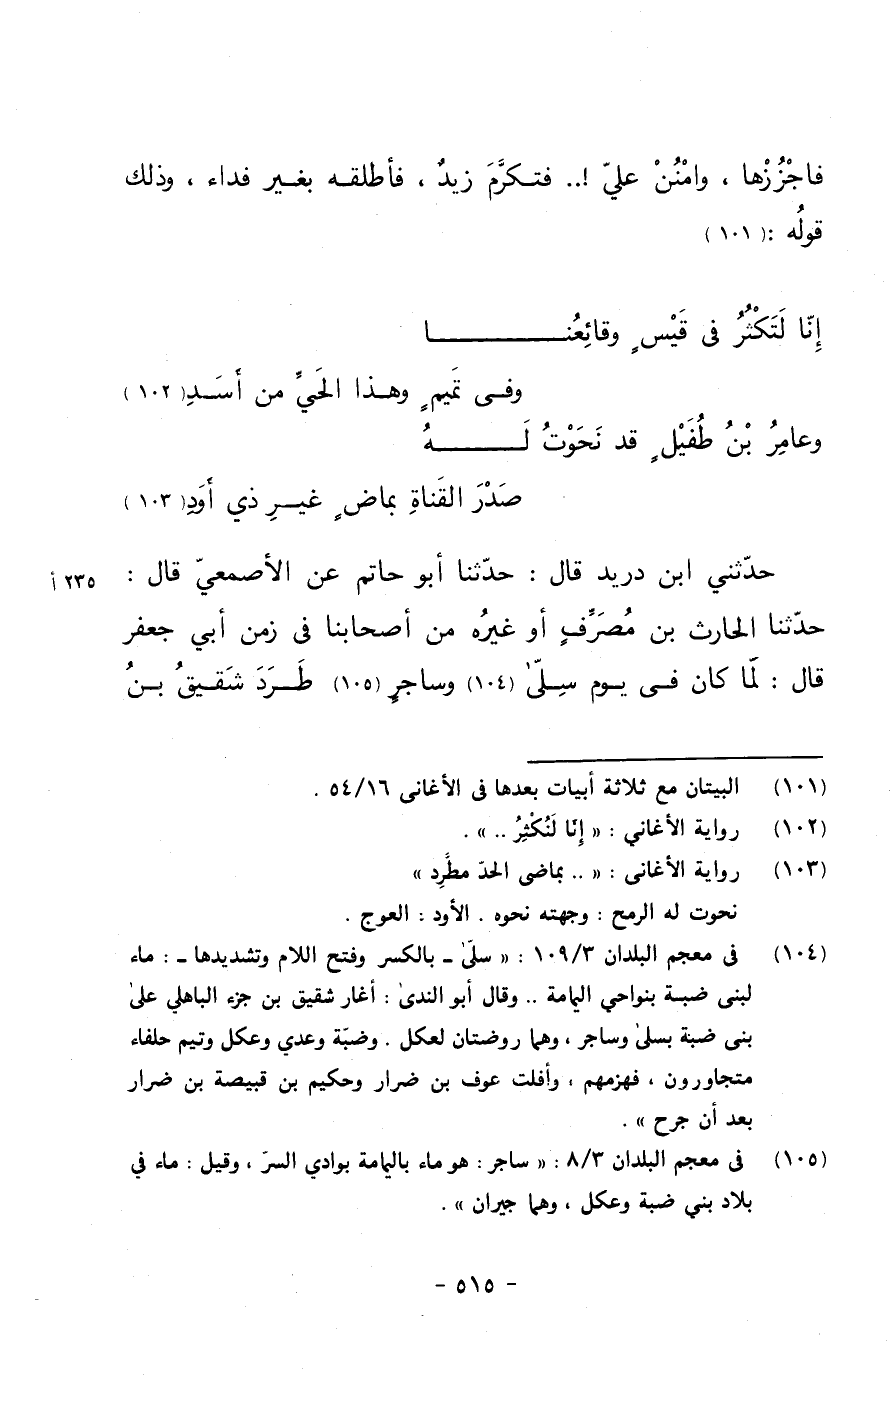 فاجْزُزْها ، وامْنُنْ عليّ !.. فتكرَّمَ زيدٌ ، فأطلقه بغير فداء ، وذلك
قولُه :(١٠١)
إنّا لَتَكْثُرُ فى قَيْسٍ وقائِعُنا
وفى تَميمٍ وهذا الحَيِّ من أَسَدِ(١٠٢)
وعامِرُ بْنُ طُفَيْلٍ قد نَحَوْتُ لَهُ
صَدْرَ القَناةِ بماضٍ غيرِ ذي أَوَدِ(١٠٣)
حدّثني ابن دريد قال : حدّثنا أبو حاتم عن الأصمعيّ قال : ٢٣٥ أ
حدّثنا الحارث بن مُصَرِّفٍ أو غيرُه من أصحابنا فى زمن أبي جعفر
قال : لمّا كان فى يوم سِلّىٰ (١٠٤) وساجرٍ (١٠٥) طَرَدَ شَقيقُ بنُ
(١٠١) البيتان مع ثلاثة أبيات بعدها فى الأغانى ٥٤/١٦ .
(١٠٢) رواية الأغاني : « إنّا لَنُكْثِرُ .. » .
(١٠٣) رواية الأغانى : « .. بماضى الحدّ مطَّرِد »
نحوت له الرمح : وجهته نحوه . الأود : العوج .
(١٠٤) فى معجم البلدان ١٠٩/٣ : « سلَّىٰ ـ بالكسر وفتح اللام وتشديدها ـ : ماء
لبنى ضبة بنواحي اليمامة .. وقال أبو الندىٰ : أغار شقيق بن جزء الباهلي علىٰ
بنى ضبة بسلىٰ وساجر ، وهما روضتان لعكل . وضبّة وعدي وعكل وتيم حلفاء
متجاورون ، فهزمهم ، وأفلت عوف بن ضرار وحكيم بن قبيصة بن ضرار
بعد أن جرح » .
(١٠٥) فى معجم البلدان ٨/٣ : « ساجر : هو ماء باليمامة بوادي السرّ ، وقيل : ماء في
بلاد بني ضبة وعكل ، وهما جيران » .
- ٥١٥ -